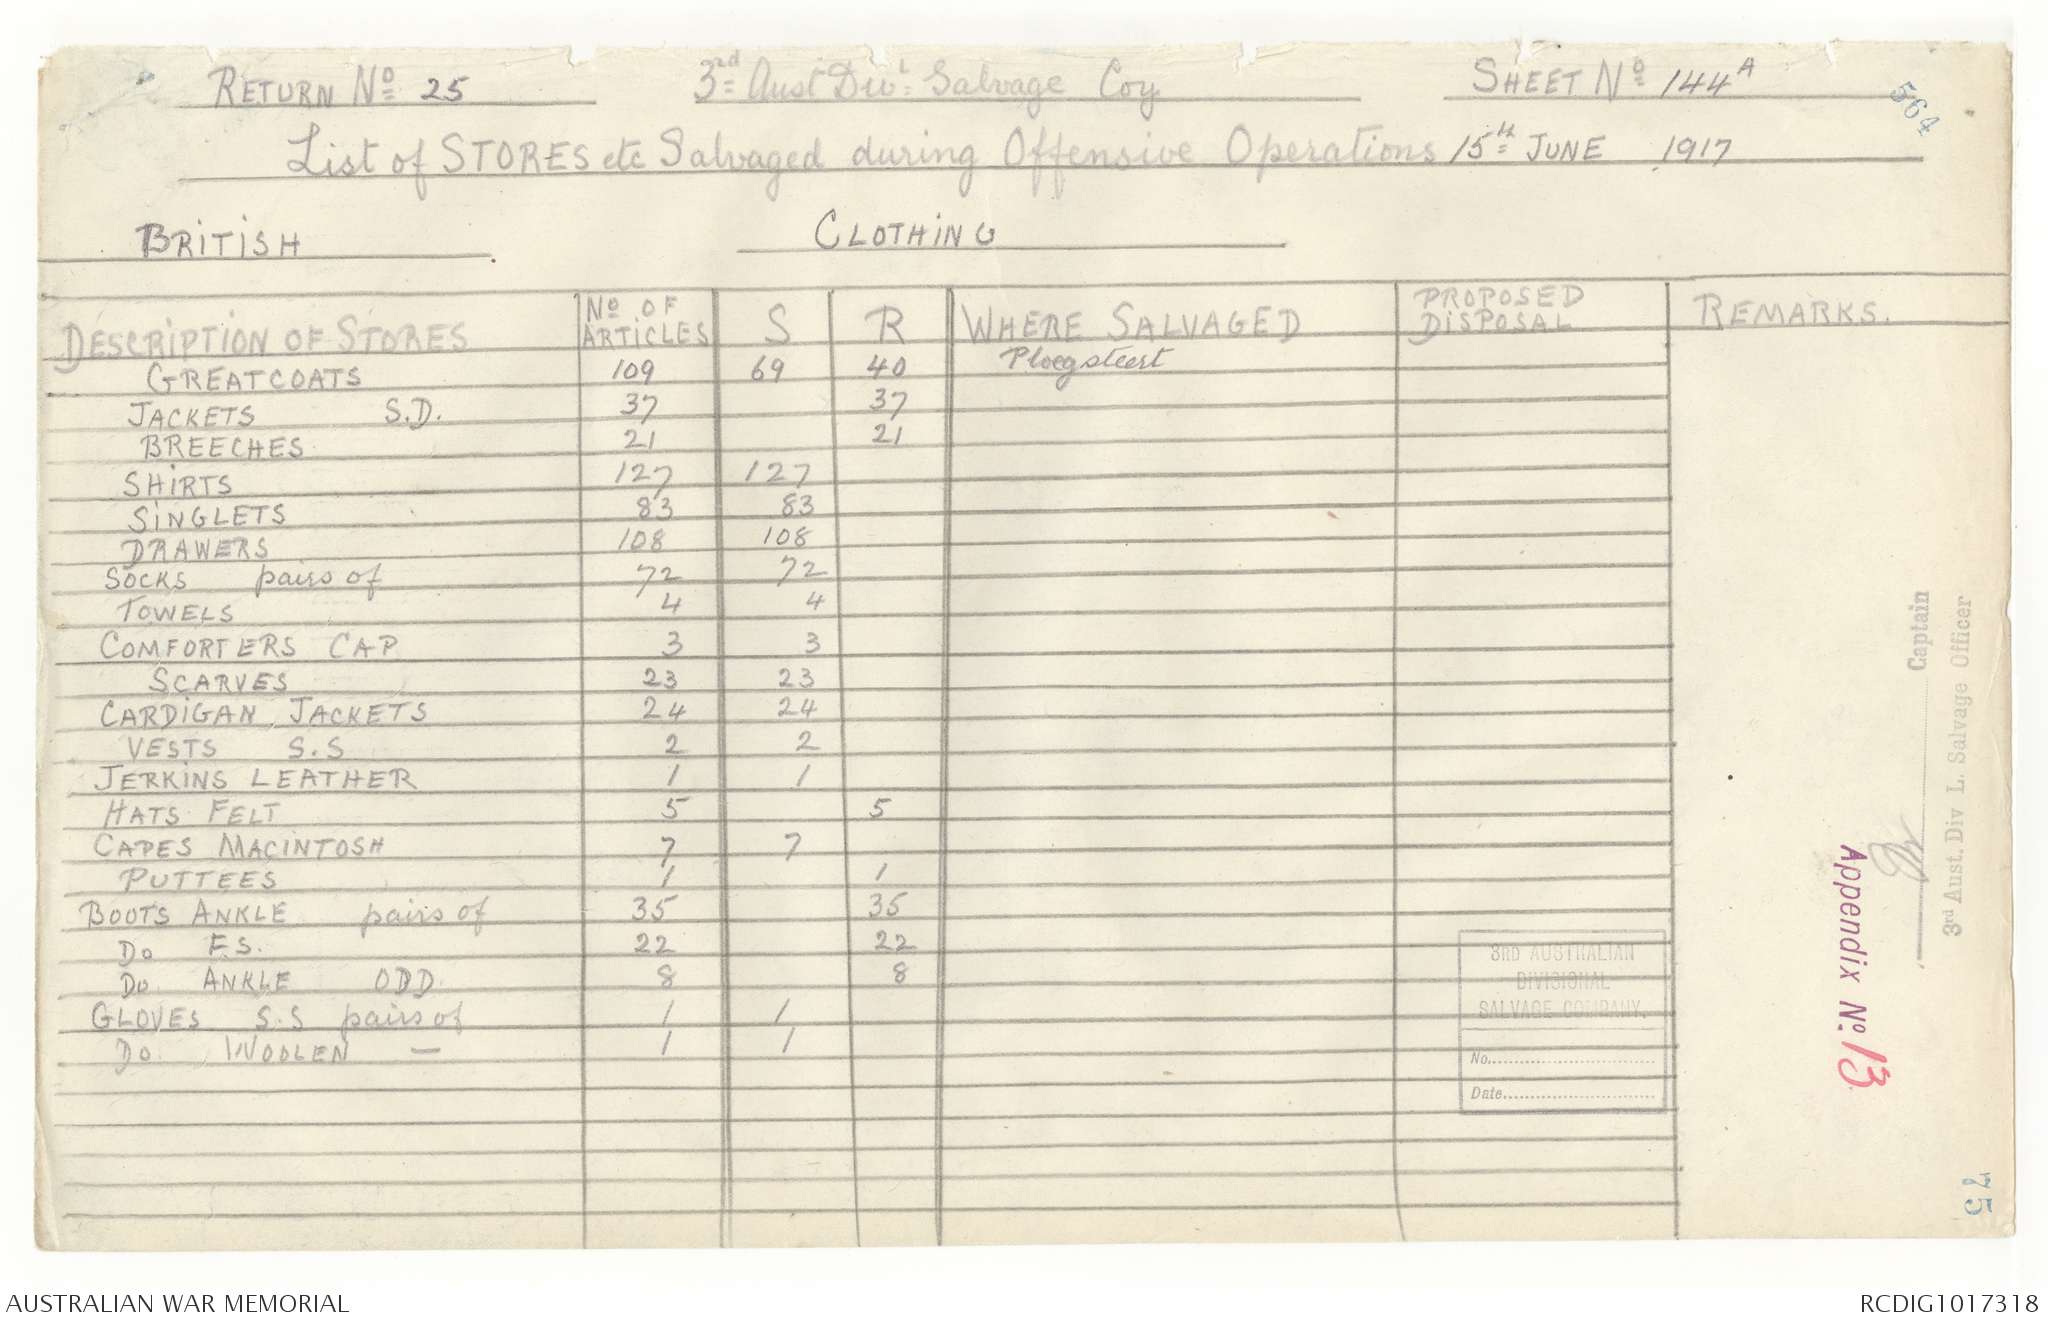 RETURN No 25 3rd Aust Divl Salvage Coy SHEET No 144A
564
List of STORES etc Salvaged during Offensive Operations 15th JUNE 1917
BRITISH CLOTHING
DESCRIPTION OF STORES No OF ARTICLES S R WHERE SALVAGED PROPOSED DISPOSAL REMARKS.
GREATCOATS 109 69 40 Ploegsteert
JACKETS S.D. 37 37
BREECHES 21 21
SHIRTS 127 127
SINGLETS 83 83
DRAWERS 108 108
SOCKS pairs of 72 72
TOWELS 4 4
COMFORTERS CAP 3 3
SCARVES 23 23
CARDIGAN JACKETS 24 24
VESTS S.S 2 2
JERKINS LEATHER 1 1
HATS FELT 5 5
CAPES MACINTOSH 7 7
PUTTEES 1 1
BOOTS ANKLE pairs of 35 35
Do F.S. 22 22
Do ANKLE ODD 8 8
GLOVES S.S pairs of 1 1
Do WOOLEN — 1 1
3RD AUSTRALIAN
DIVISIONAL
SALVAGE COMPANY.
No..............................
Date..............................
Appendix No. 13
Captain
3rd Aust. Div L. Salvage Officer
75
AUSTRALIAN WAR MEMORIAL RCDIG1017318